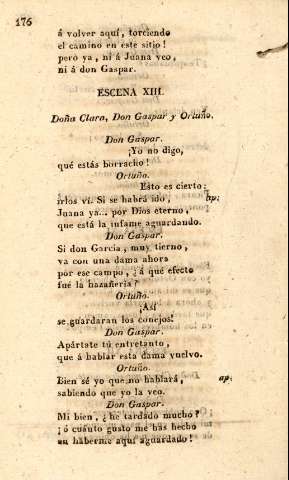 176
á volver aquí, torciendo
el camino en este sitio!
pero ya, ni á Juana veo,
ni á don Gaspar.
ESCENA XIII.
Doña Clara, Don Gaspar y Ortuño.
Don Gaspar.
¡Yo no digo,
qué estás borracho!
Ortuño.
Esto es cierto:
irlos ví. Si se habrá ido, ap:
Juana ya... por Dios eterno,
que está la infame aguardando.
Don Gaspar.
Si don García, muy tierno,
va con una dama ahora
por ese campo, ¿á qué efecto
fué la hazañería?
Ortuño.
¡Así
se guardaran los conejos!
Don Gaspar.
Apártate tú entretanto,
que á hablar esta dama vuelvo.
Ortuño.
Bien sé yo que no hablará, ap:
sabiendo que yo la veo.
Don Gaspar.
Mi bien, ¿he tardado mucho?
¡ó cuánto gusto me has hecho
en haberme aquí aguardado!